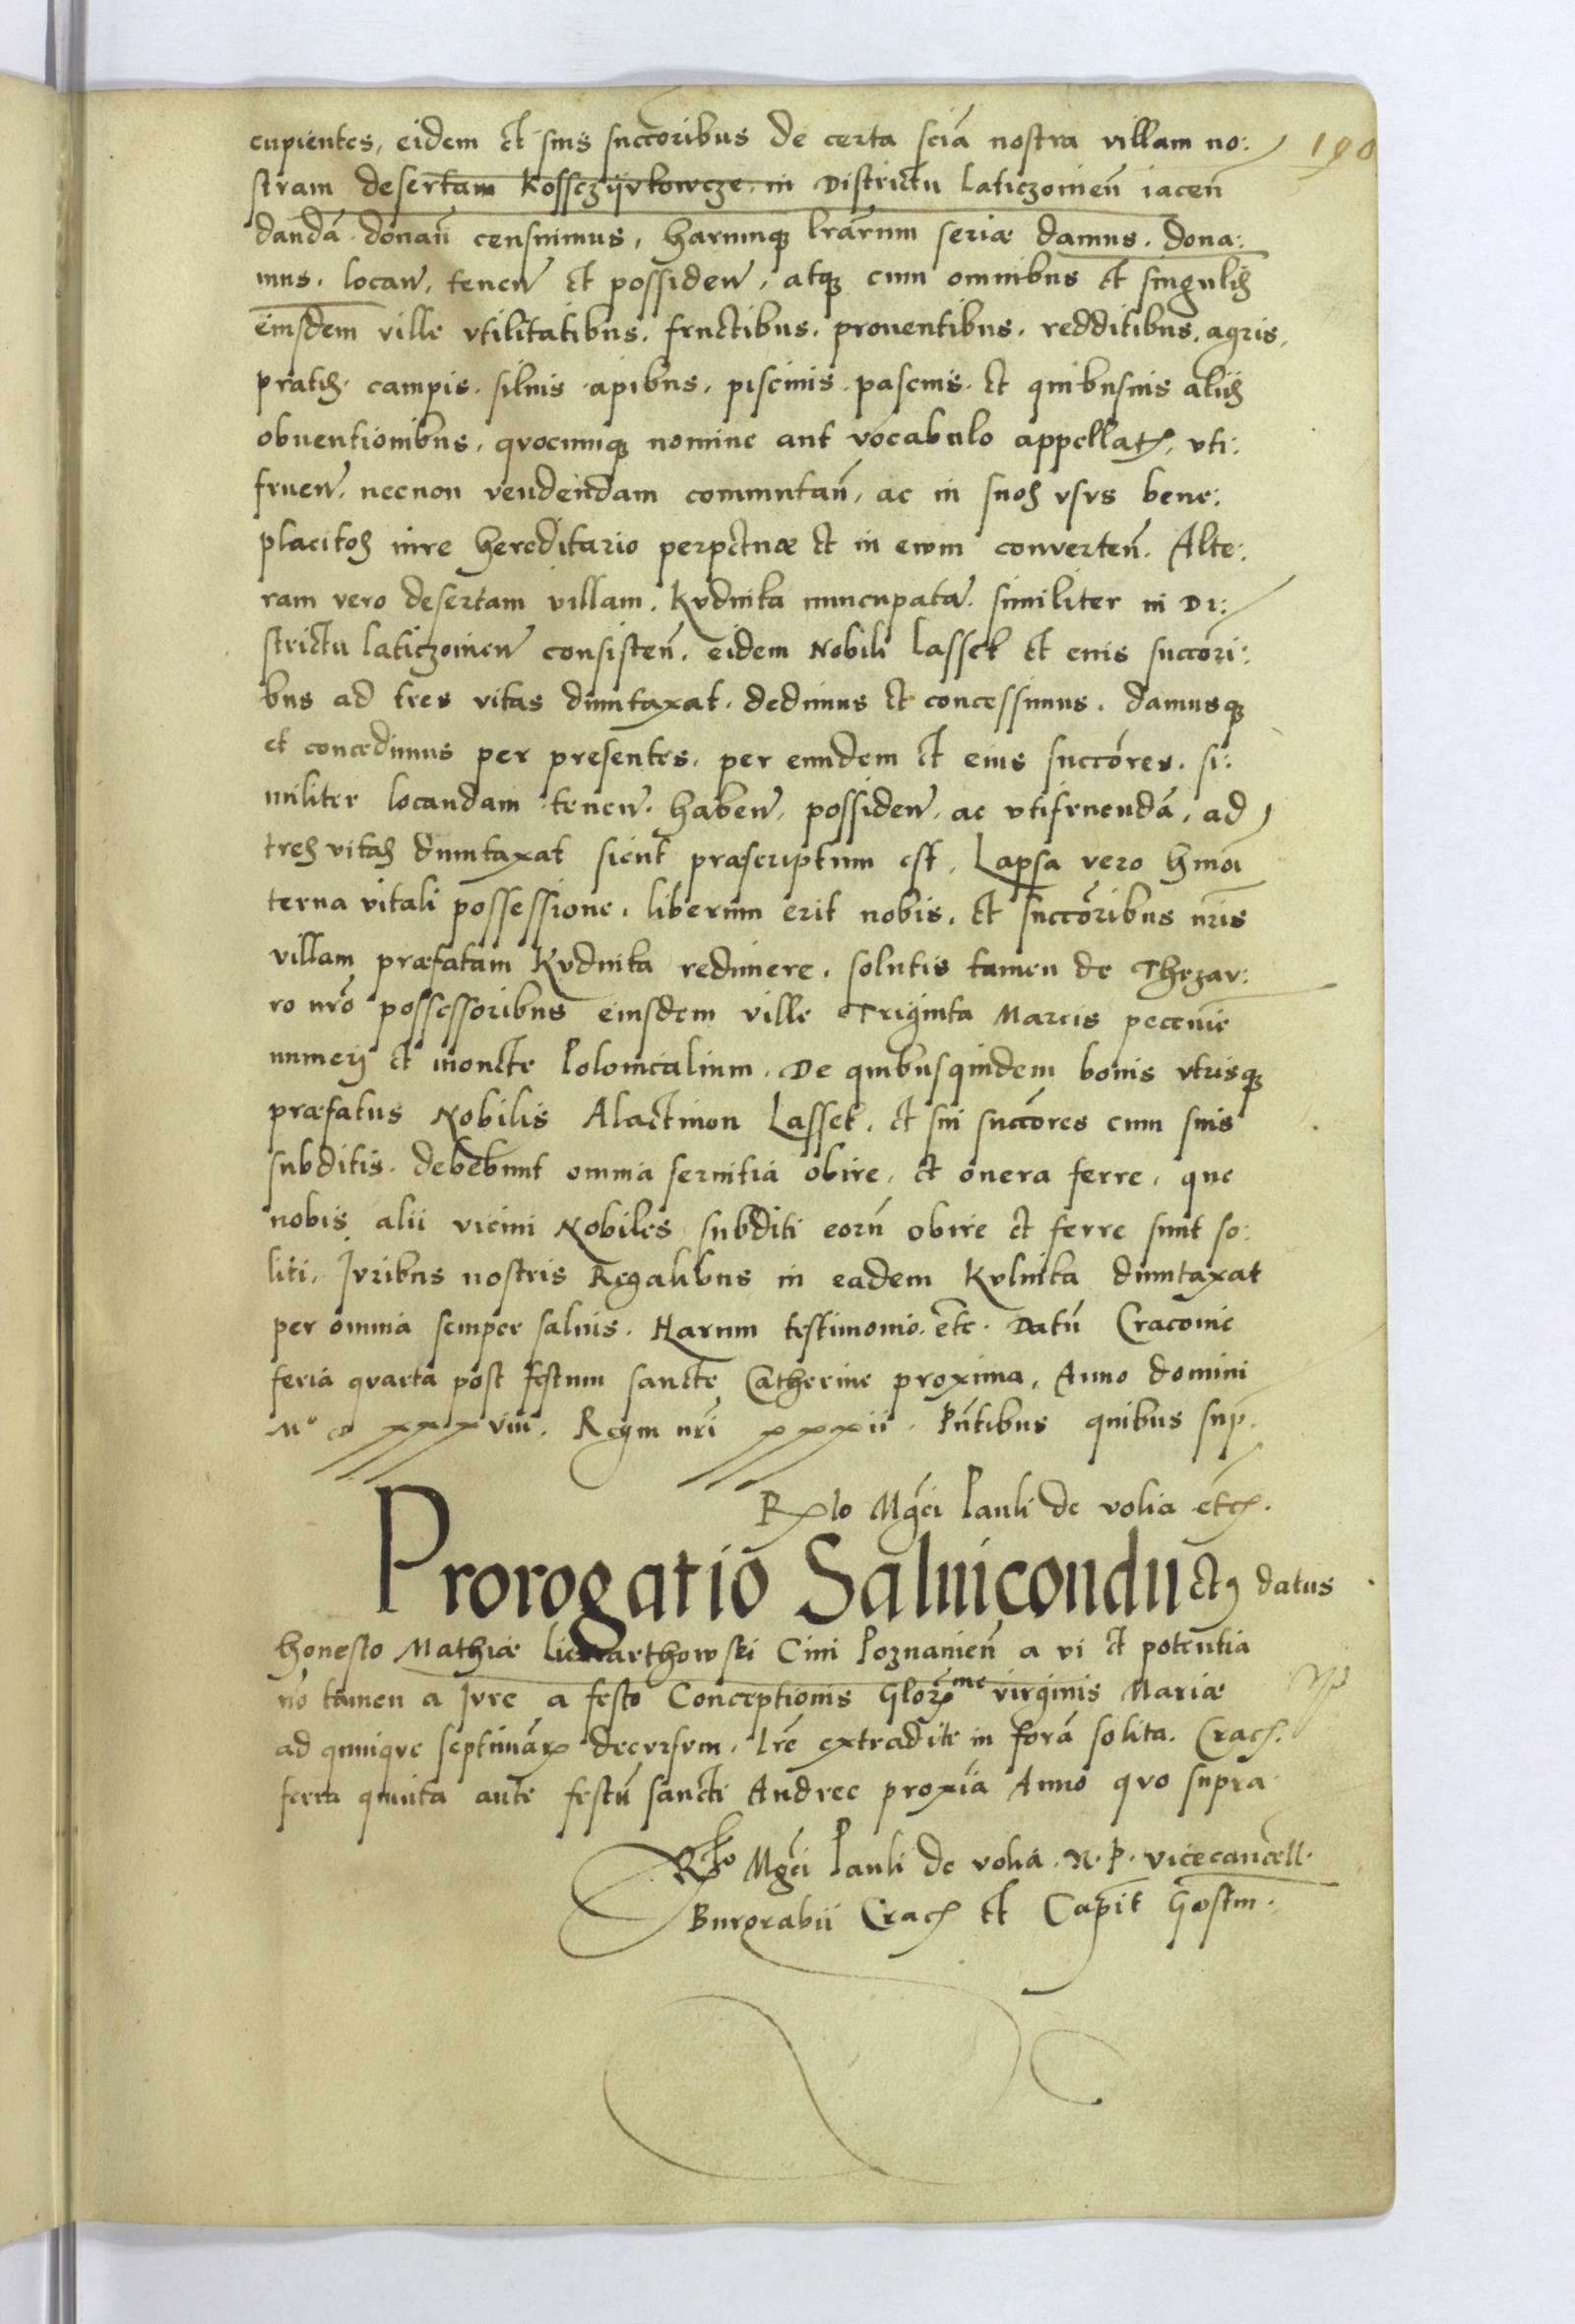 cupientes, eidem et suis succoribus de certa sciā nostra villam no: 190
stram desertam Kossczyvkowcze in Districtu laticzouien̄ iacen̄
dandā donan̄ censuimus, harumq; lrārum seriæ damus. dona:
mus. locan̄, tenen̄ et possiden̄, atq; cum omnibus et singulis
eiusdem ville vtilitatibus. fructibus. prouentibus. redditibus. agris,
pratis. campis. siluis. apibus. piscinis. pascuis. et quibusuis aliis
obuentionibus, quocunq; nomine aut vocabulo appellat̄, vti:
fruen̄. necnon vendendam commutan̄, ac in suos vsvs bene:
placitos iure hereditario perpetuæ et in ewm converten̄. Alte:
ram vero desertam villam. Kvdnika nuncupatā. similiter in Di:
strictu laticzouien̄ consisten̄. eidem Nobili Lasset et euis succori:
bus ad tres vitas duntaxat. dedimus et concessimus. damusq;
et concedimus per presentes. per eundem et eius succōres. si:
militer locandam tenen̄. haben̄, possiden̄, ac vtifruendā, ad
tres vitas duntaxat sicut præscriptum est. Lapsa vero hmōi
terna vitali possessione, liberum erit nobis, et succōribus nr̄is
villam præfatam Kvdnika redimere. solutis tamen de Thezav:
ro nrō possessoribus eiusdem ville Triginta Marcis pecunie
numeri et monete Polonicalium. De quibusquidem bonis vtrisq;
præfatus Nobilis Alactinon Lasset. et sui succōres cum suis
subditis. debebunt omnia seruitia obire, et onera ferre, que
nobis alii vicini Nobiles subditi eorū obire et ferre sunt so:
liti. Jvribus nostris Regalibus in eadem Kvlnika duntaxat
per omnia semper saluis. Harum testimonio. etc. Datū Cracouie
feria qvarta post festum sancte Catherine proxima, Anno domini
M° D xxxviii. Regni nr̄i xxxii. Pn̄tibus quibus sup.
Rlo Mgci Pauli de volia etc.
Prorogatio Saluiconductus datus
honesto Mathiæ Ciui Poznanien̄ a vi et potentia
nō tamen a Jvre a festo Conceptionis Glorme virginis Mariæ
ad quinqve septimār decvrsvm. lrē extradite in formā solita. Crac.
feria quinta ante festū sancti Andree proxia Anno qvo supra
Rlo Mgci Pauli de volia. R. P. vicecancell.
Burgrabii Crac et Capit Gostin.